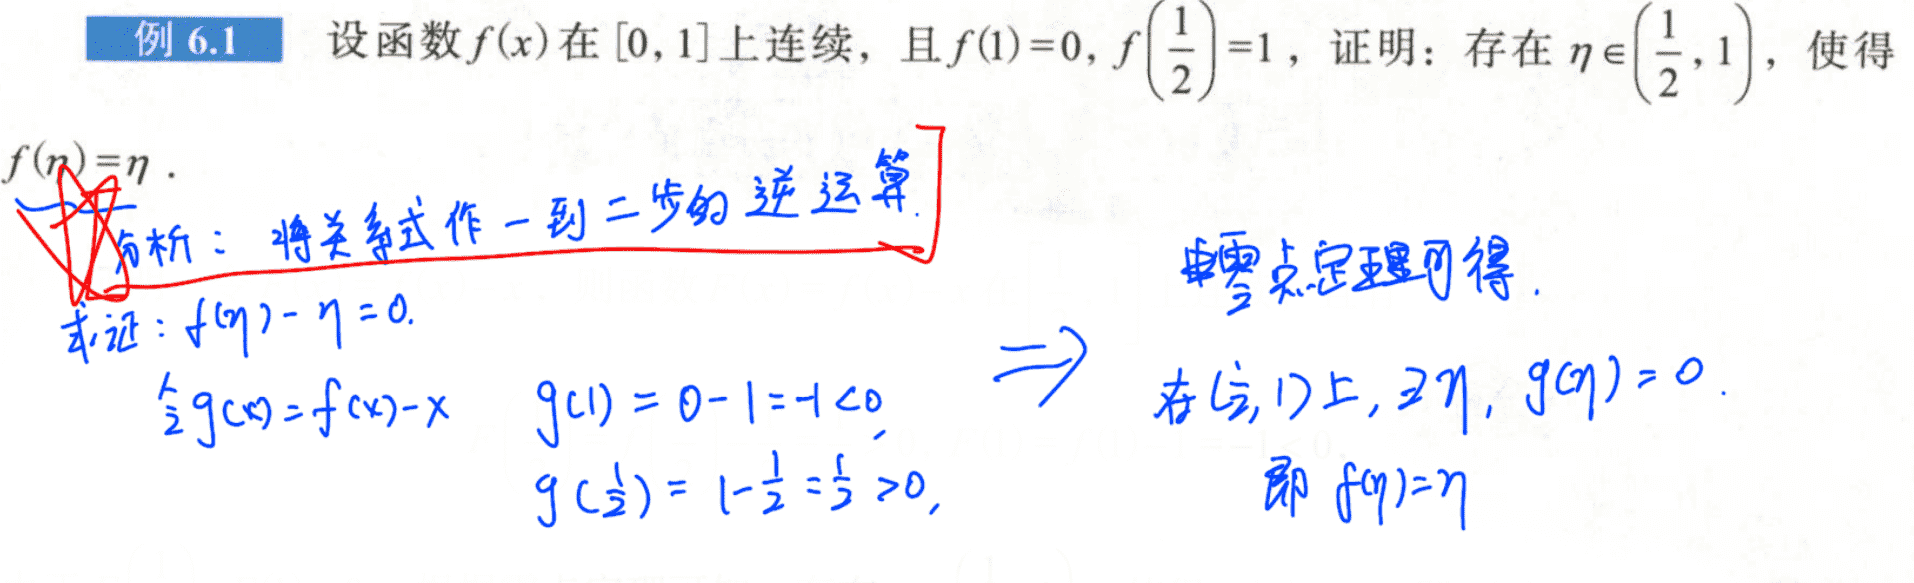 例 6.1 设函数 f(x) 在 [0, 1] 上连续，且 f(1)=0, f(1/2)=1，证明：存在 η∈(1/2, 1)，使得
f(η)=η .
分析：将关系式作一到二步的逆运算.
求证：f(η)-η=0.
令 g(x)=f(x)-x g(1)=0-1=-1<0,
g(1/2)=1-1/2=1/2>0,
⇒
由零点定理可得.
在(1/2,1)上，∃η, g(η)=0.
即 f(η)=η